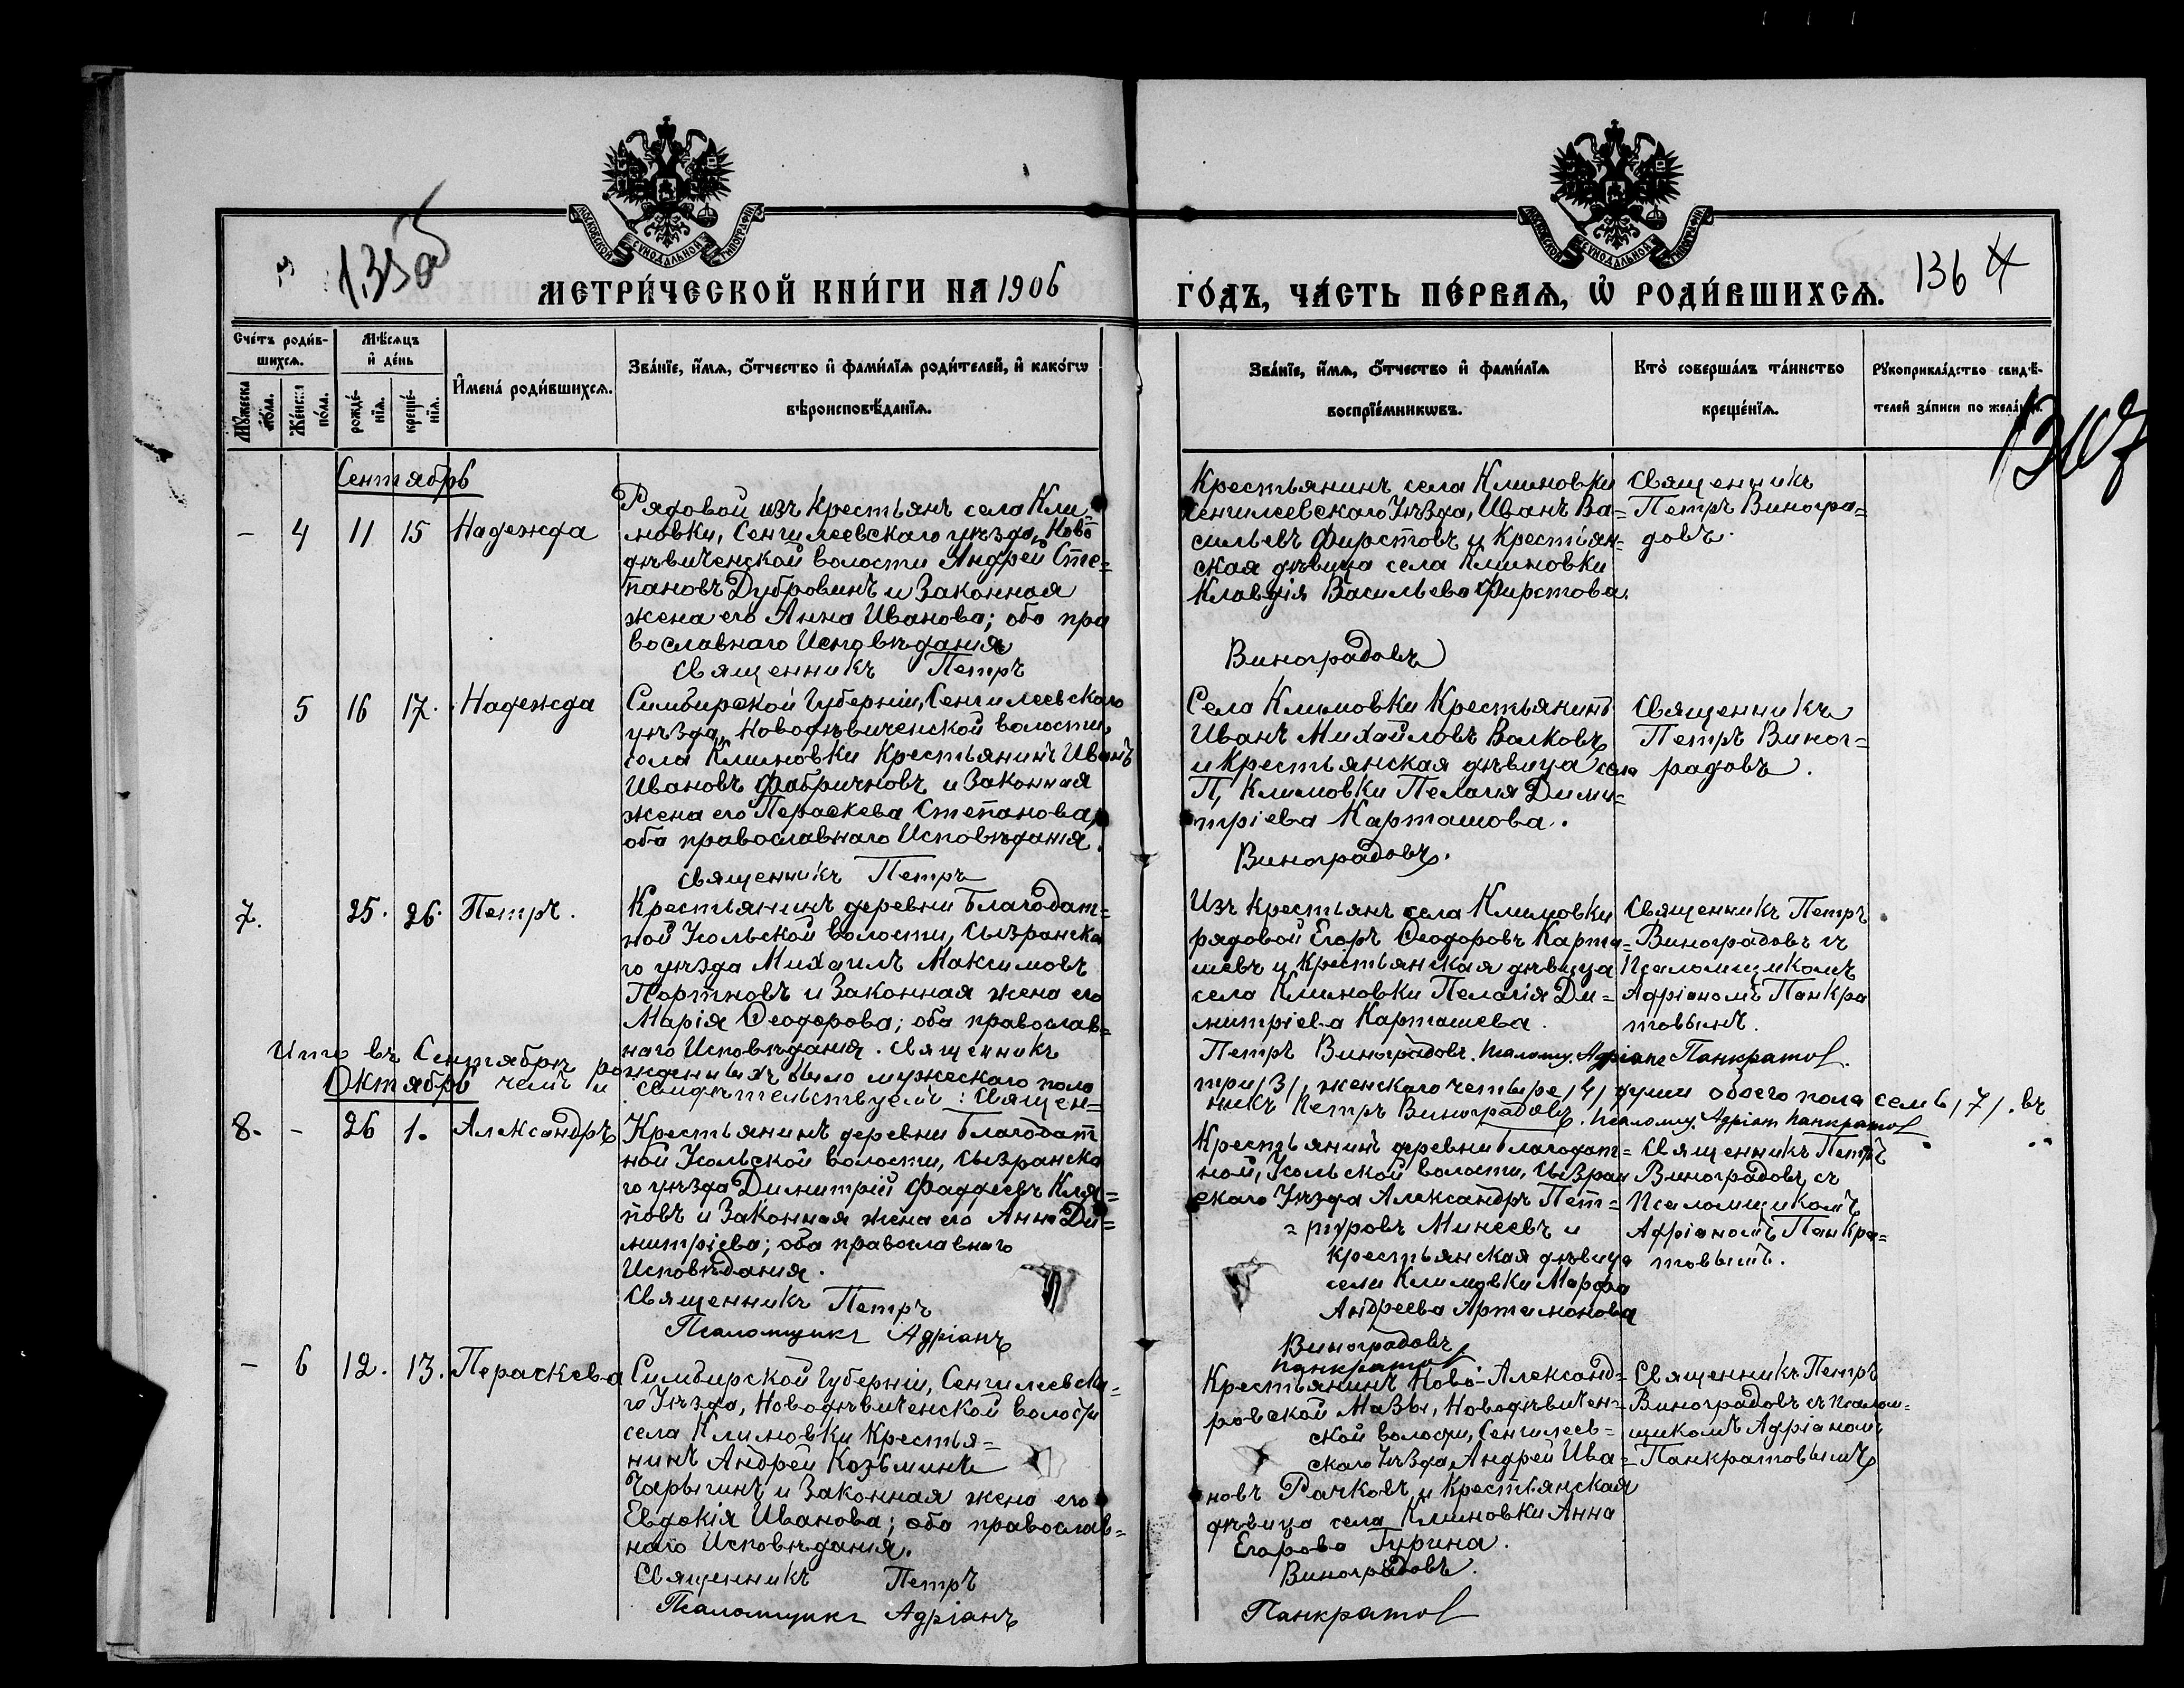 МОСКОВСКОЙ СѴНОДАЛЬНОЙ ТИПОГРАФІИ
МОСКОВСКОЙ СѴНОДАЛЬНОЙ ТИПОГРАФІИ
135 об
136
МЕТРИ́ЧЕСКОЙ КНИ́ГИ НА 1906
ГО́ДЪ, ЧА́СТЬ ПЕ́РВАѦ, Ѡ РОДИ́ВШИХСѦ.
Сче́тъ роди́в-
шихсѧ.
Мѣ́сѧцъ
и҆ де́нь
Мꙋ́жеска по́ла.
Же́нска по́ла.
рожде́-
нїѧ.
креще́-
нїѧ.
И҆мена̀ роди́вшихсѧ.
Зва́нїе, и҆́мѧ, ѻ҆́тчество и҆ фамилїѧ роди́телей, и҆ како́гѡ
вѣроисповѣ́данїѧ.
Зва́нїе, и҆́мѧ, ѻ҆́тчество и҆ фами́лїѧ
воспрїе́мникѡвъ.
Кто̀ соверша́лъ та́инство
креще́нїѧ.
Рꙋкоприкла́дство свидѣ́-
телей за́писи по жела́нїю.
Сентябрь
- 4 11 15 Надежда
Рядовой изъ крестьянъ села Кли
мовки, Сенгилеевскаго уѣзда, Ново
дѣвиченской волости Андрей Сте=
пановъ Дубровинъ и законная
жена его Анна Иванова; оба пра
вославнаго Исповѣданія
Священникъ Петръ
Крестьянинъ села Климовки
Сенгилеевскаго Уѣзда, Иванъ Ва=
сильевъ Фирстовъ и крестьян=
ская дѣвица села Климовки
Клавдія Васильева Фирстова.
Виноградовъ
Священникъ
Петръ Виногра=
довъ.
5 16 17. Надежда
Симбирской Губерніи, Сенгилеевскаго
уѣзда, Новодѣвиченской волости
села Климовки Крестьянинъ Иванъ
Ивановъ Фабричновъ и законная
жена его Параскева Степанова,
оба православнаго Исповѣданія.
Священникъ Петръ
Села Климовки Крестьянинъ
Иванъ Михайловъ Волковъ
и крестьянская дѣвица села
Климовки Пелагія Дими=
тріева Карташова.
Виноградовъ.
Священникъ
Петръ Виног=
радовъ.
7. 25. 26. Петръ.
Крестьянинъ деревни Благодат=
ной Усольской волости, Сызранска
го уѣзда Михаилъ Максимовъ
Портновъ и законная жена его
Марія Ѳеодорова; оба православ=
наго Исповѣданія. Священникъ
Изъ крестьянъ села Климовки
рядовой Егоръ Ѳеодоровъ Карта=
шевъ и крестьянская дѣвица
села Климовки Пелагія Ди=
митріева Карташева.
Петръ Виноградовъ. Псаломщ. Адріанъ Панкратов
Священникъ Петръ
Виноградовъ съ
Псаломщикомъ
Адріаномъ Панкра
товымъ.
Итого въ Сентябрѣ рожденныхъ было мужескаго пола
три /3/, женскаго четыре /4/ души обоего пола семь /7/. въ
чемъ и свидѣтельствуемъ: Священ=
никъ Петръ Виноградовъ. Псаломщ. Адріанъ Панкратов
Октябрь
8. - 26 1. Александръ
Крестьянинъ деревни Благодат
ной Усольской волости, Сызранска
го уѣзда Димитрій Фаддеевъ Кля=
повъ и законная жена его Анна Ди=
митріева; оба православнаго
Исповѣданія.
Священникъ Петръ
Псаломщикъ Адріанъ
Крестьянинъ деревни Благодат=
ной, Усольской волости, Сызран
скаго Уѣзда Александръ Пет=
=ровъ Минеевъ и
крестьянская дѣвица
села Климовки Марфа
Андреева Артамонова
Виноградовъ
Панкратов
Священникъ Петръ
Виноградовъ съ
Псаломщикомъ
Адріаномъ Панкра=
товымъ.
- 6 12. 13. Параскева
Симбирской Губерніи, Сенгилеевска=
го Уѣзда, Новодѣвиченской волости
села Климовки Крестья=
нинъ Андрей Козьминъ
Чарыгинъ и законная жена его
Евдокія Иванова; оба православ=
наго Исповѣданія.
Священникъ Петръ
Псаломщикъ Адріанъ
Крестьянинъ Ново-Александ=
ровской Мазы, Новодѣвичен=
ской волости, Сенгилеев=
скаго Уѣзда, Андрей Ива=
новъ Рачковъ и крестьянская
дѣвица села Климовки Анна
Егорова Гурина.
Виноградовъ.
Панкратов
Священникъ Петръ
Виноградовъ съ Псалом=
щикомъ Адріаномъ
Панкратовымъ